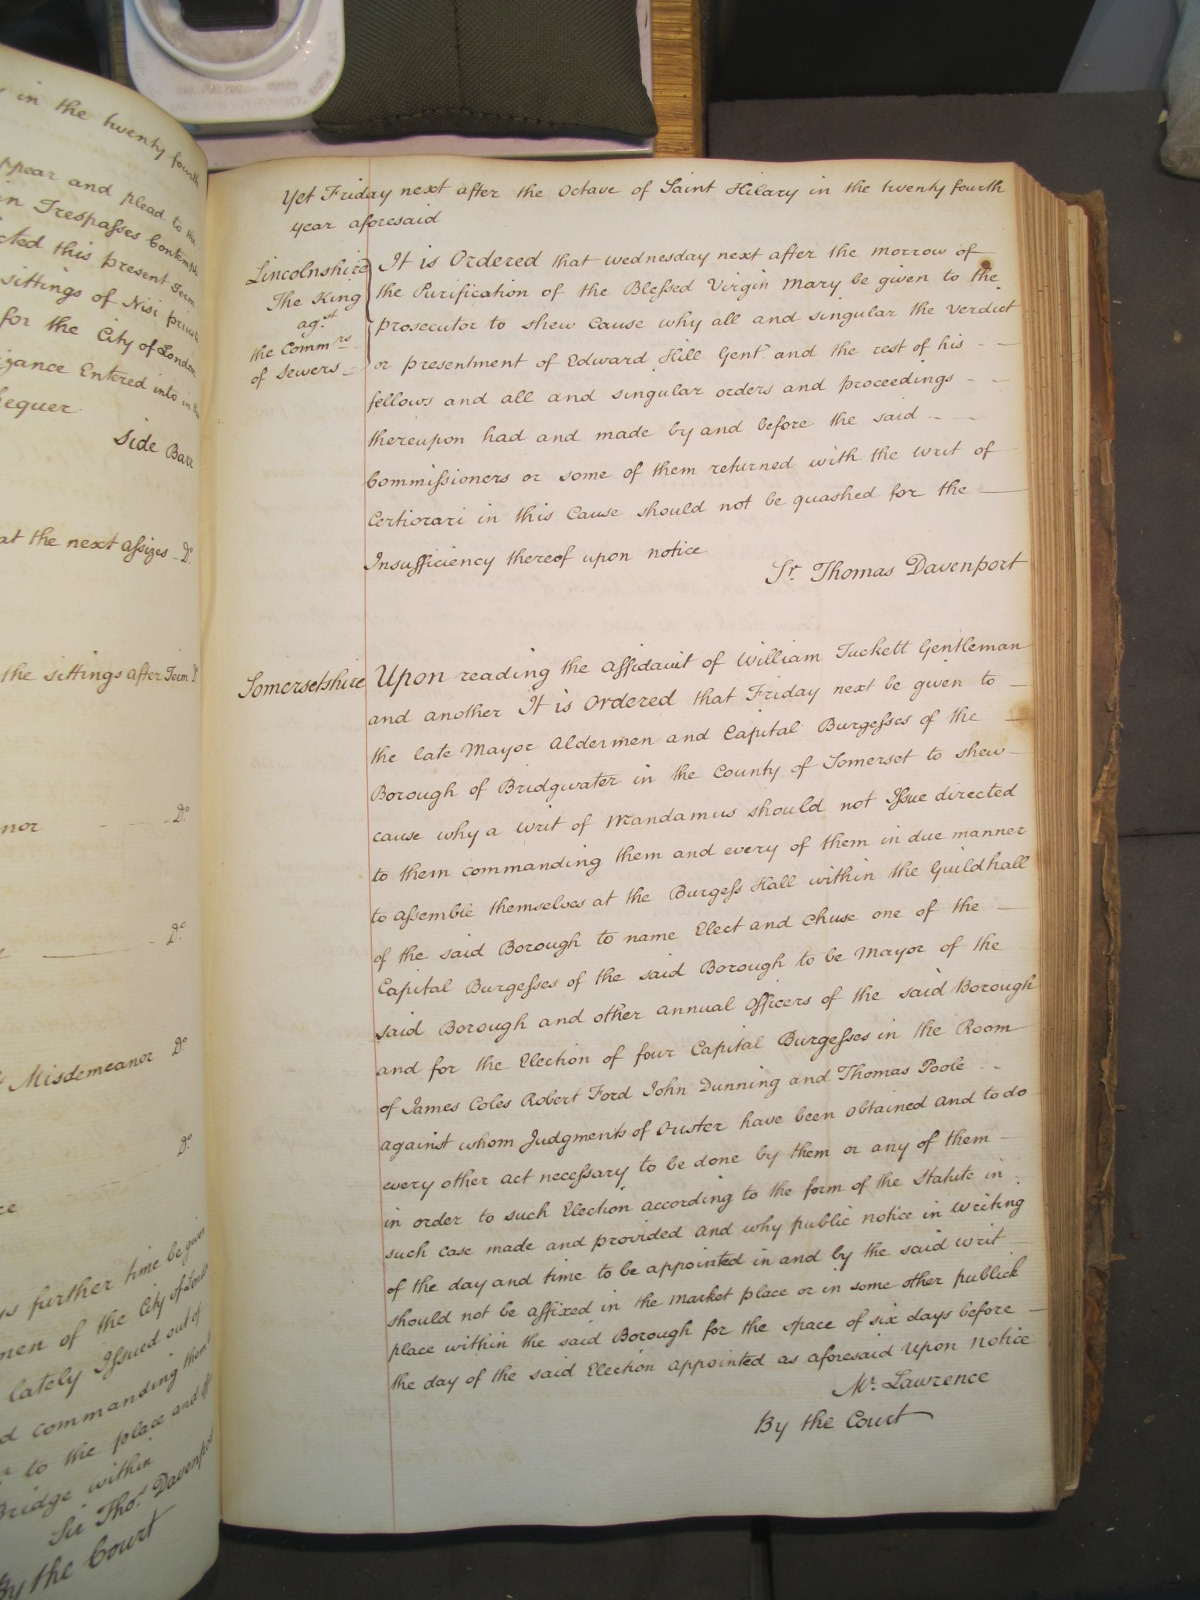 in the twenty fourth
appear and plead to the
in Trespasses Contempts
this present Term
sittings of Nisi prius
for the City of London
Entered into in
Side Barr
at the next assizes - Do
the sittings after Term
Do
Do
Misdemeanor Do
Do
further time be given
men of the City of London
lately Issued out of
commanding them
to the place and
Bridge within
Sir Thos. Davenport
By the Court
Yet Friday next after the Octave of Saint Hilary in the twenty fourth
year aforesaid
Lincolnshire
The King
agst
the Commrs
of Sewers
It is Ordered that wednesday next after the morrow of
the Purification of the Blessed Virgin Mary be given to the
prosecutor to shew Cause why all and singular the verdict
or presentment of Edward Hill Gent. and the rest of his
fellows and all and singular orders and proceedings
thereupon had and made by and before the said
Commissioners or some of them returned with the writ of
Certiorari in this Cause should not be quashed for the
Insufficiency thereof upon notice
Sr. Thomas Davenport
Somersetshire
Upon reading the affidavit of William Tuckett Gentleman
and another It is Ordered that Friday next be given to
the late Mayor Aldermen and Capital Burgesses of the
Borough of Bridgwater in the County of Somerset to shew
cause why a writ of Mandamus should not Issue directed
to them commanding them and every of them in due manner
to assemble themselves at the Burgess Hall within the Guildhall
of the said Borough to name Elect and chuse one of the
Capital Burgesses of the said Borough to be Mayor of the
said Borough and other annual officers of the said Borough
and for the Election of four Capital Burgesses in the Room
of James Coles Robert Ford John Dunning and Thomas Poole
against whom Judgments of Ouster have been obtained and to do
every other act necessary to be done by them or any of them
in order to such Election according to the form of the Statute in
such case made and provided and why public notice in writing
of the day and time to be appointed in and by the said writ
should not be affixed in the market place or in some other publick
place within the said Borough for the space of six days before
the day of the said Election appointed as aforesaid upon notice
Mr. Lawrence
By the Court